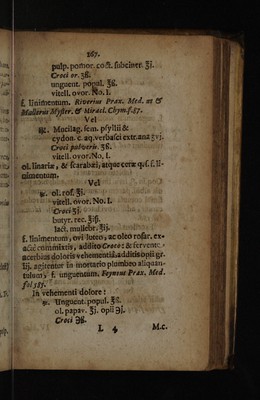 267.
pulp. pomor. coct. subciner. ℥j.
Croci or. ʒß.
unguent. popul. ℥ß.
vitell. ovor. No. I.
f. Unimentum. Riverius Prax. Med. ut &
Mullerus Myster. & Mirael. Chym. f. 57.
Vel
℞. Mucilag. sem. psyllii &
cydon. c. aq. verbasci extr. ana ʒvj.
Croci pulveris. ʒß.
vitell. ovor. No. I.
ol. linariæ, & scarabæi, atque ceræ q. s. f. li-
nimentum.
Vel
℞. ol. ros. ℥j.
vitell. ovor. No. I.
Croci ʒj.
butyr. rec. ℥iß.
lact. muliebr. ℥ij.
f. linimentum, ovi luteo, ac oleo rosar. ex-
acte commixtis, addito Croco: & fervente,
acerbiaq doloris vehementiâ, additis opii gr.
iij. agitentur in mortario plumbeo aliquan-
tulum, f. unguentum. Feyneus Prax. Med.
fol 385.
In vehementi dolore:
℞. Unguent. popul. ℥ß.
ol. papav. ℥j. opii ℈ß.
Croci ℈ß.
L 4 M.c.